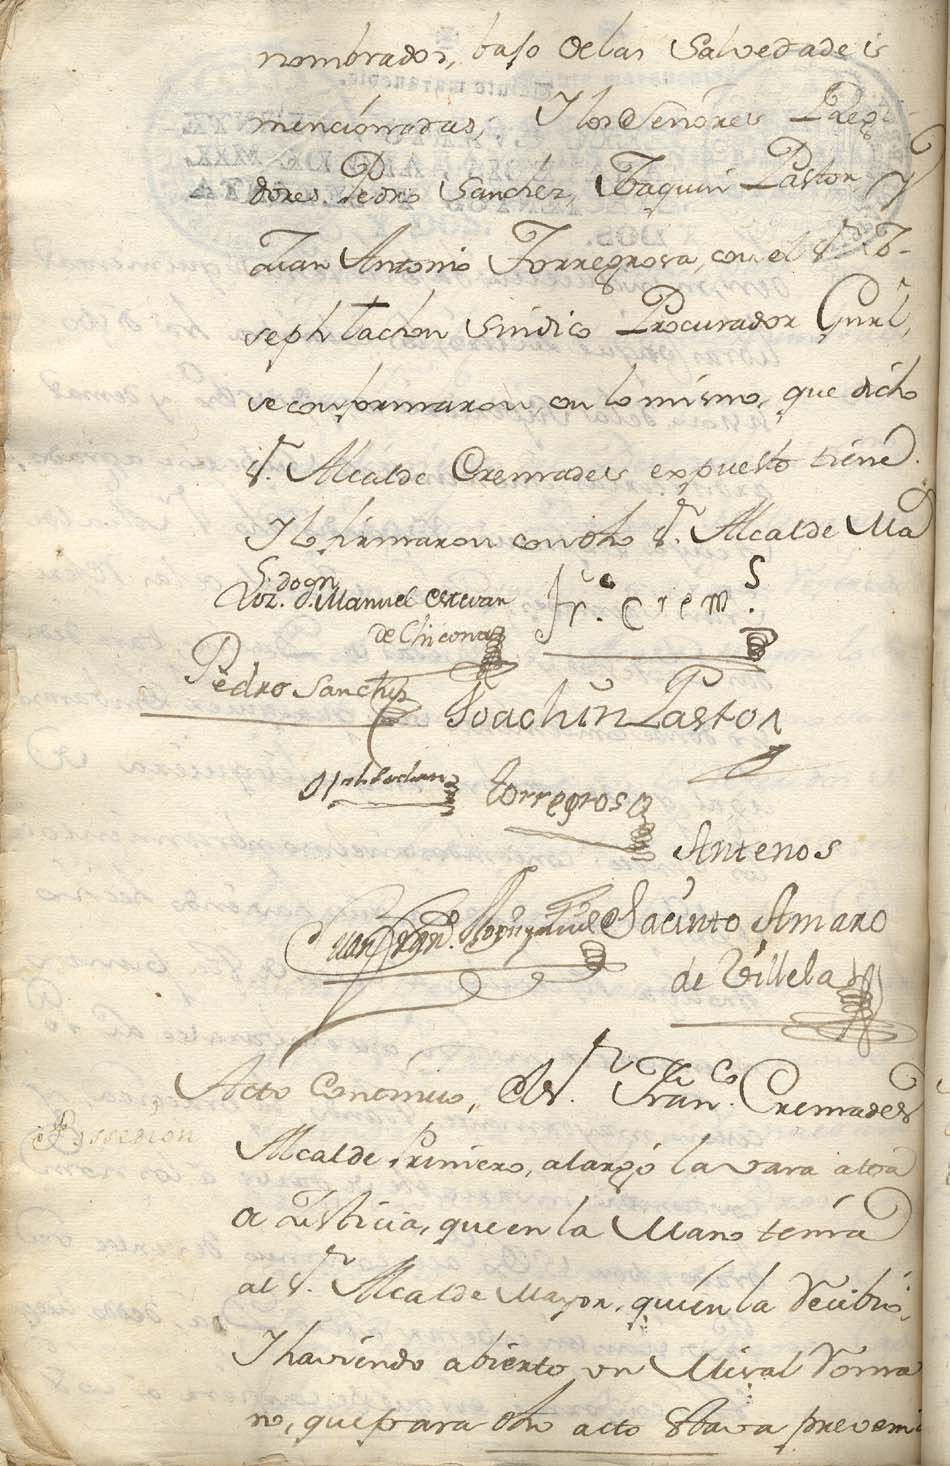 nombrados, baso delas Salvedades
mencionadas; Y los Señores Regi-
dores Pedro Sanchez, Joaquin Pastor, y
Juan Antonio Torregrosa, con el Sr. Jo-
seph Tachon Sindico Procurador Gnrl,
se conformaron, en lo mismo, que dicho
Sr. Alcalde Cremades expuesto tiene.
Y lo firmaron con dho Sr. Alcalde Ma
dogn
Dn. Manuel Estevan
de Chicona
Fr.co Crems.
Pedro Sanchis
Joachin Pastor
Torregrosa
Antenos
Juan
Jacinto Amaro
de Villeba
Acto Continuo, El Sr. Fran.co Cremades
Possecion
Alcalde Primero, alargò la vara alta
de Justicia, que en la Mano tenia
al Sr. Alcalde Mayor, quien la recibiò,
Y haviendo abierto un Misal Roma
no, que para dho acto estava preveni